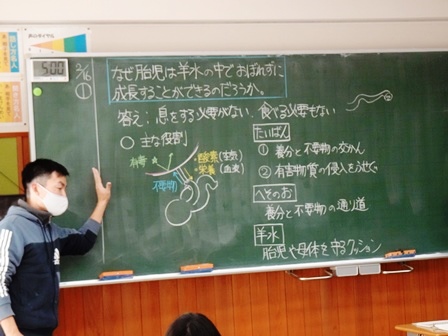 500
2/16
①
なぜ胎児は羊水の中でおぼれずに
成長することができるのだろうか。
答え:息をする必要がない 食べる必要もない
○ 主な役割
酸素(空気)
・栄養(血液)
不要物
たいばん
① 養分と不要物の交かん
② 有害物質の侵入をふせぐ
へそのお
養分と不要物の通り道
羊水
胎児や母体を守るクッション